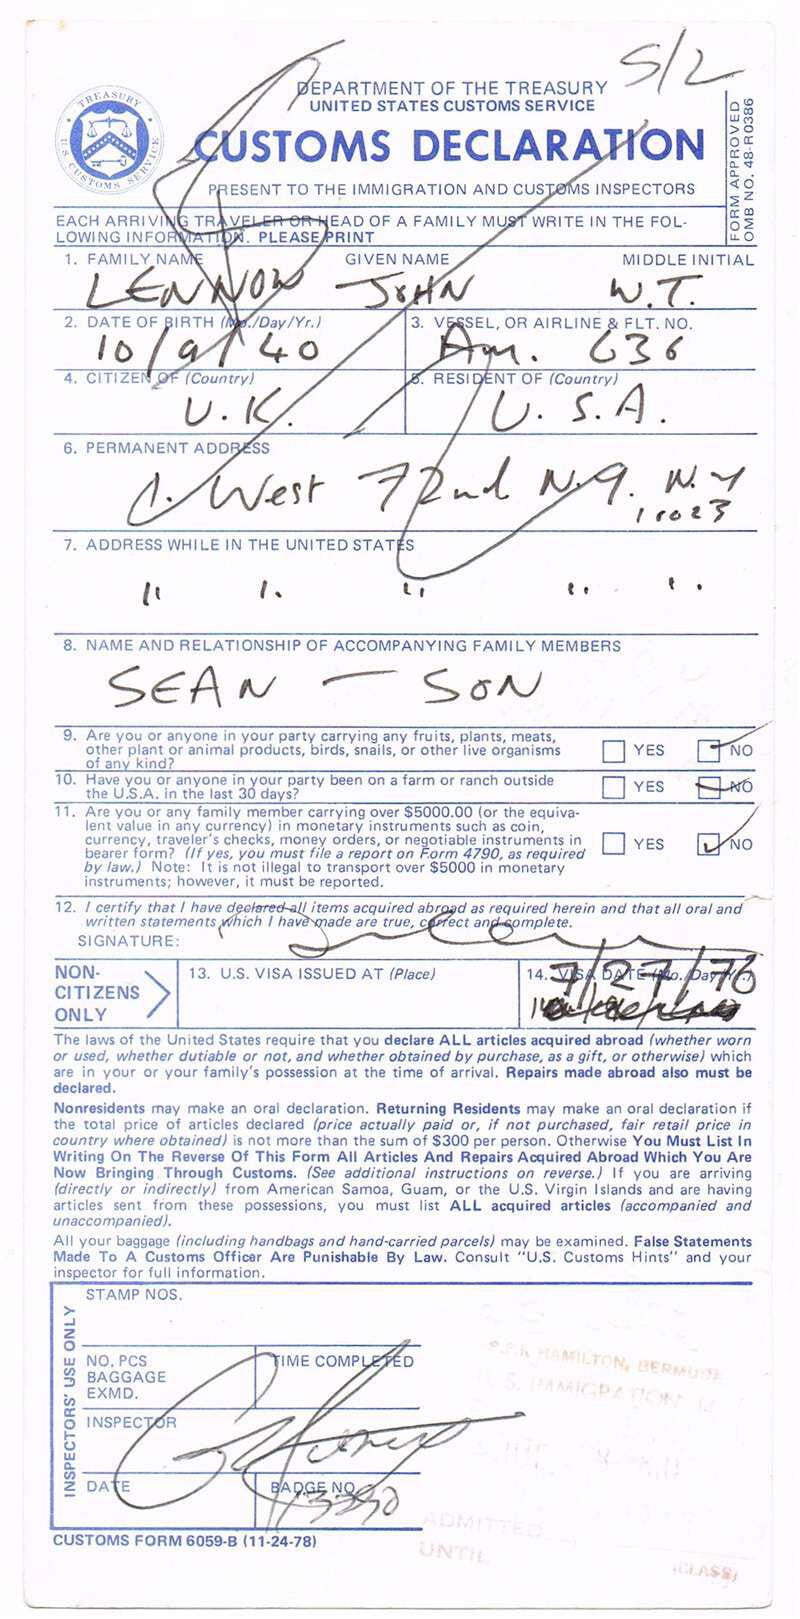 S/2
DEPARTMENT OF THE TREASURY
UNITED STATES CUSTOMS SERVICE
CUSTOMS DECLARATION
TREASURY
U.S. CUSTOMS SERVICE
FORM APPROVED
OMB NO. 48-R0386
PRESENT TO THE IMMIGRATION AND CUSTOMS INSPECTORS
EACH ARRIVING TRAVELER OR HEAD OF A FAMILY MUST WRITE IN THE FOL-
LOWING INFORMATION. PLEASE PRINT
1. FAMILY NAME GIVEN NAME MIDDLE INITIAL
LENNON JOHN W.T.
2. DATE OF BIRTH (Mo./Day/Yr.) 3. VESSEL, OR AIRLINE & FLT. NO.
10/9/40 Am. 636
4. CITIZEN OF (Country) 5. RESIDENT OF (Country)
U.K. U.S.A.
6. PERMANENT ADDRESS
1. West 72nd N.Y. N.Y
10023
7. ADDRESS WHILE IN THE UNITED STATES
" " " " "
8. NAME AND RELATIONSHIP OF ACCOMPANYING FAMILY MEMBERS
SEAN — SON
9. Are you or anyone in your party carrying any fruits, plants, meats,
other plant or animal products, birds, snails, or other live organisms YES NO
of any kind?
10. Have you or anyone in your party been on a farm or ranch outside YES NO
the U.S.A. in the last 30 days?
11. Are you or any family member carrying over $5000.00 (or the equiva-
lent value in any currency) in monetary instruments such as coin,
currency, traveler's checks, money orders, or negotiable instruments in YES NO
bearer form? (If yes, you must file a report on Form 4790, as required
by law.) Note: It is not illegal to transport over $5000 in monetary
instruments; however, it must be reported.
12. I certify that I have declared all items acquired abroad as required herein and that all oral and
written statements which I have made are true, correct and complete.
SIGNATURE:
NON-
CITIZENS
ONLY
13. U.S. VISA ISSUED AT (Place) 14. VISA DATE (Mo./Day/Yr.)
7/27/76
The laws of the United States require that you declare ALL articles acquired abroad (whether worn
or used, whether dutiable or not, and whether obtained by purchase, as a gift, or otherwise) which
are in your or your family's possession at the time of arrival. Repairs made abroad also must be
declared.
Nonresidents may make an oral declaration. Returning Residents may make an oral declaration if
the total price of articles declared (price actually paid or, if not purchased, fair retail price in
country where obtained) is not more than the sum of $300 per person. Otherwise You Must List In
Writing On The Reverse Of This Form All Articles And Repairs Acquired Abroad Which You Are
Now Bringing Through Customs. (See additional instructions on reverse.) If you are arriving
(directly or indirectly) from American Samoa, Guam, or the U.S. Virgin Islands and are having
articles sent from these possessions, you must list ALL acquired articles (accompanied and
unaccompanied).
All your baggage (including handbags and hand-carried parcels) may be examined. False Statements
Made To A Customs Officer Are Punishable By Law. Consult "U.S. Customs Hints" and your
inspector for full information.
INSPECTORS' USE ONLY
STAMP NOS.
NO. PCS TIME COMPLETED
BAGGAGE
EXMD.
INSPECTOR
DATE BADGE NO.
13390
HAMILTON, BERMUDA
U.S. IMMIGRATION
ADMITTED
UNTIL
(CLASS)
CUSTOMS FORM 6059-B (11-24-78)